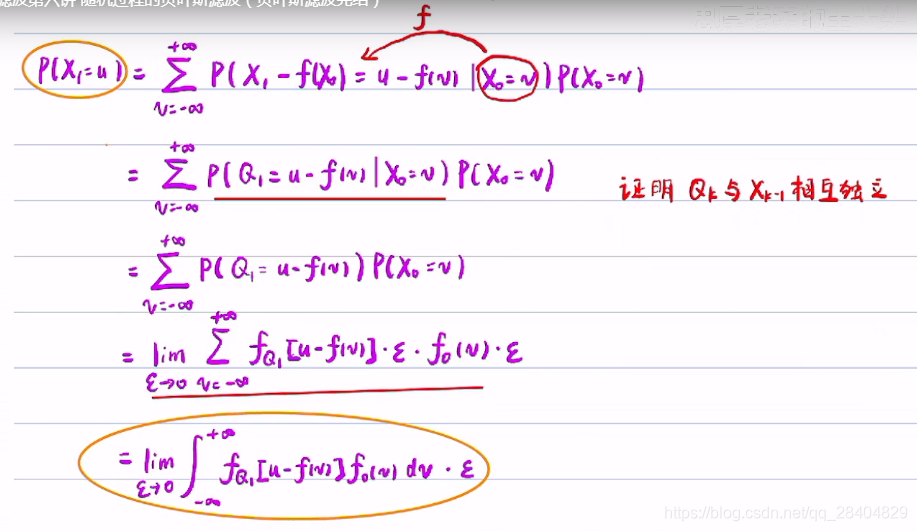 滤波第六讲 随机过程的贝叶斯滤波（贝叶斯滤波完结）
f
P(X₁=u) = ∑_{v=-∞}^{+∞} P(X₁-f(X₀) = u-f(v) | X₀=v) P(X₀=v)
= ∑_{v=-∞}^{+∞} P(Q₁=u-f(v) | X₀=v) P(X₀=v)
证明 Qₖ与Xₖ₋₁相互独立
= ∑_{v=-∞}^{+∞} P(Q₁=u-f(v)) P(X₀=v)
= lim_{ε→0} ∑_{v=-∞}^{+∞} f_{Q₁}[u-f(v)]·ε·f₀(v)·ε
= lim_{ε→0} ∫_{-∞}^{+∞} f_{Q₁}[u-f(v)]f₀(v) dv·ε
https://blog.csdn.net/qq_28404829